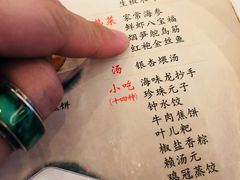 家常海参
鲜虾八宝福
烟笋鸵鸟筋
红袍金丝鱼
汤
银杏煨汤
小吃
(十四种)
海味龙抄手
珍珠元子
钟水饺
牛肉焦饼
叶儿粑
椒盐香粽
赖汤元
鸡冠蒸饺